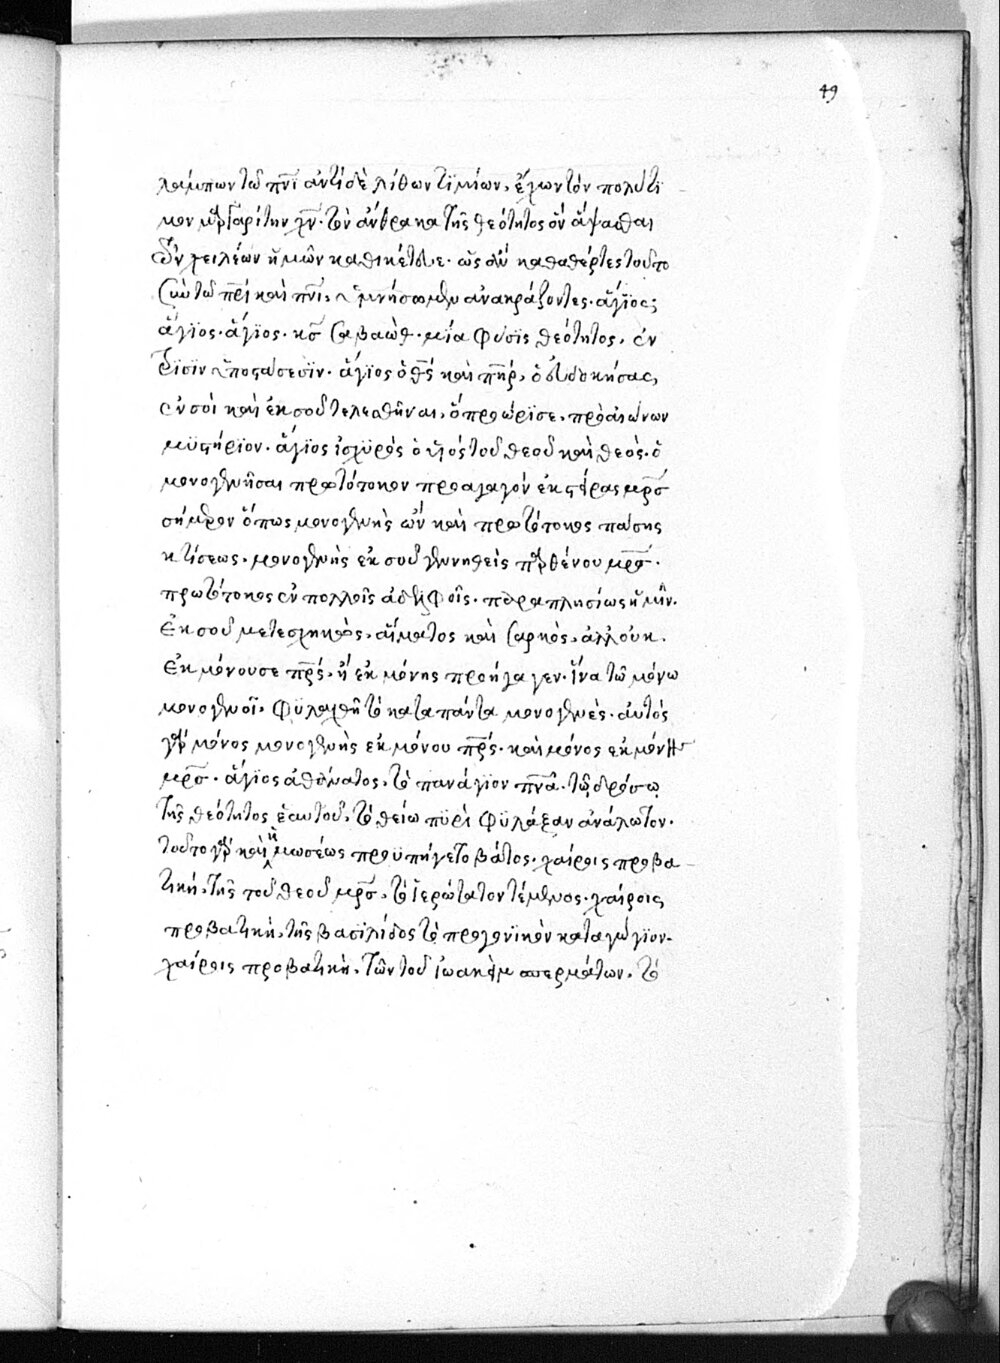 49
λάμπων τῶ πνϊ ἀντὶ δὲ λίθων τϊμίων, ἔχων τὸν πολύτϊ
μον μαργαρίτην χν· τὸν ἄνθρακα τῆς θεότητος ὃν ἅψασθαι
τῶν χειλέων ἡμῶν καθικέτευε· ὡς ἂν καθαθέρτες τοῦτο
σὺν τῶ πρὶ καὶ πνϊ, ὑμνήσωμεν ἀνακράζοντες· ἅγϊος;
ἅγϊος· ἅγϊος· κς σαβαὼθ· μία φύσϊς θεότητος, ἐν
τρϊσὶν ὑποστάσεσϊν· ἅγϊος ὁ θς καὶ πηρ, ὁ εὐδοκήσας,
ἐν σοὶ καὶ ἐκ σοῦ τελεσθῆναι, ὃ προώρϊσε, πρὸ αἰώνων
μϋστήρϊον· ἅγϊος ἰσχϋρὸς ὁ υἱὸς τοῦ θεοῦ καὶ θεὸς· ὁ
μονογενῆ σαι πρωτότοκον προαγαγὸν ἐκ στείρας μρς
σήμερον ὅπως μονογενὴς ὢν καὶ πρωτότοκος πάσης
κτίσεως· μονογενὴς ἐκ σοῦ γεννηθεὶς παρθένου μρς·
πρωτότοκος ἐν πολλοῖς ἀδελφοῖς· παραπλησίως ἡμῖν·
ἐκ σοῦ μετεσχηκὼς, αἵματος καὶ σαρκὸς, ἀλλ' οὐκ·
ἐκ μόνου σε πρς, ἢ ἐκ μόνης προήγαγεν· ἵνα τῶ μόνω
μονογενοῖ, φϋλαχθῆ τὸ κατα πάντα μονογενές· αὐτὸς
γὰρ μόνος μονογενὴς ἐκ μόνου πρς· καὶ μόνος ἐκ μόνης
μρς· ἅγϊος ἀθάνατος, τὸ πανάγϊον πνα· τῶ δρόσω
τῆς θεότητος ἑαυτοῦ, τῶ θείω πϋρὶ φϋλάξαν ἀνάλωτον·
τοῦτο γὰρ καὶ ἡ μωσέως προϋπήγετο βάτος· χαίροις προβα
τικὴ, τῆς τοῦ θεοῦ μρς, τὸ ἱερώτατον τέμενος· χαίροις
προβατικὴ, τῆς βασϊλίδος τὸ προγονϊκὸν καταγώγϊον·
χαίροις προβατικὴ, τῶν τοῦ ἰωακεὶμ σπερμάτων, τὸ